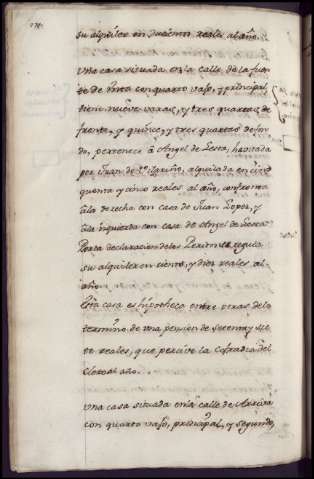 su alquiler en Ducientos reales al año.
Una casa situada en la calle de la fuen
te de Onta con quarto vajo, y principal,
tiene nueve varas, y tres quartas de
frente, y quince, y tres quartas de fon
do, pertenece à Angel de Lesta, havitada
por Juan de Sn. Mariño, alquilada en cin
quenta y cinco reales al año, confronta
a la derecha con casa de Juan Lopez, y
a la izquierda con casa de Angel de Lesta
Por la declaracion de los Peritos se regula
su alquiler en ciento, y diez reales al
año.
Esta casa es hipotheca entre otras de lo
termino, de una pension de setenta y sie
te reales, que percive la Cofradia del
Clero al año.
Una casa situada en la calle de Arriva
con quarto vajo, principal, y segundo,